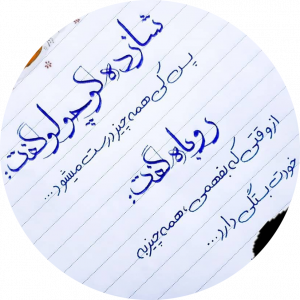 شازده کوچولو گفت:
پس کی همه چیز درست میشود...
روباه گفت:
از وقتی که بفهمی، همه چیز به
خودت بستگی دارد...